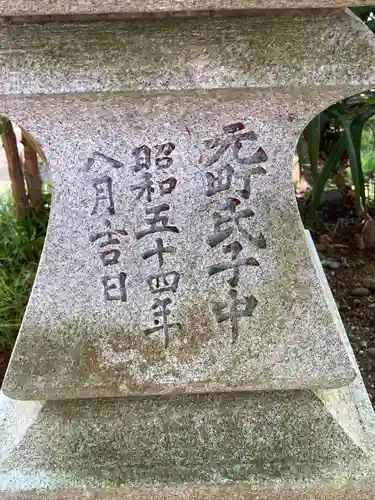 元町氏子中
昭和五十四年
八月吉日